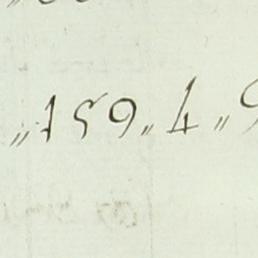 „159„4„